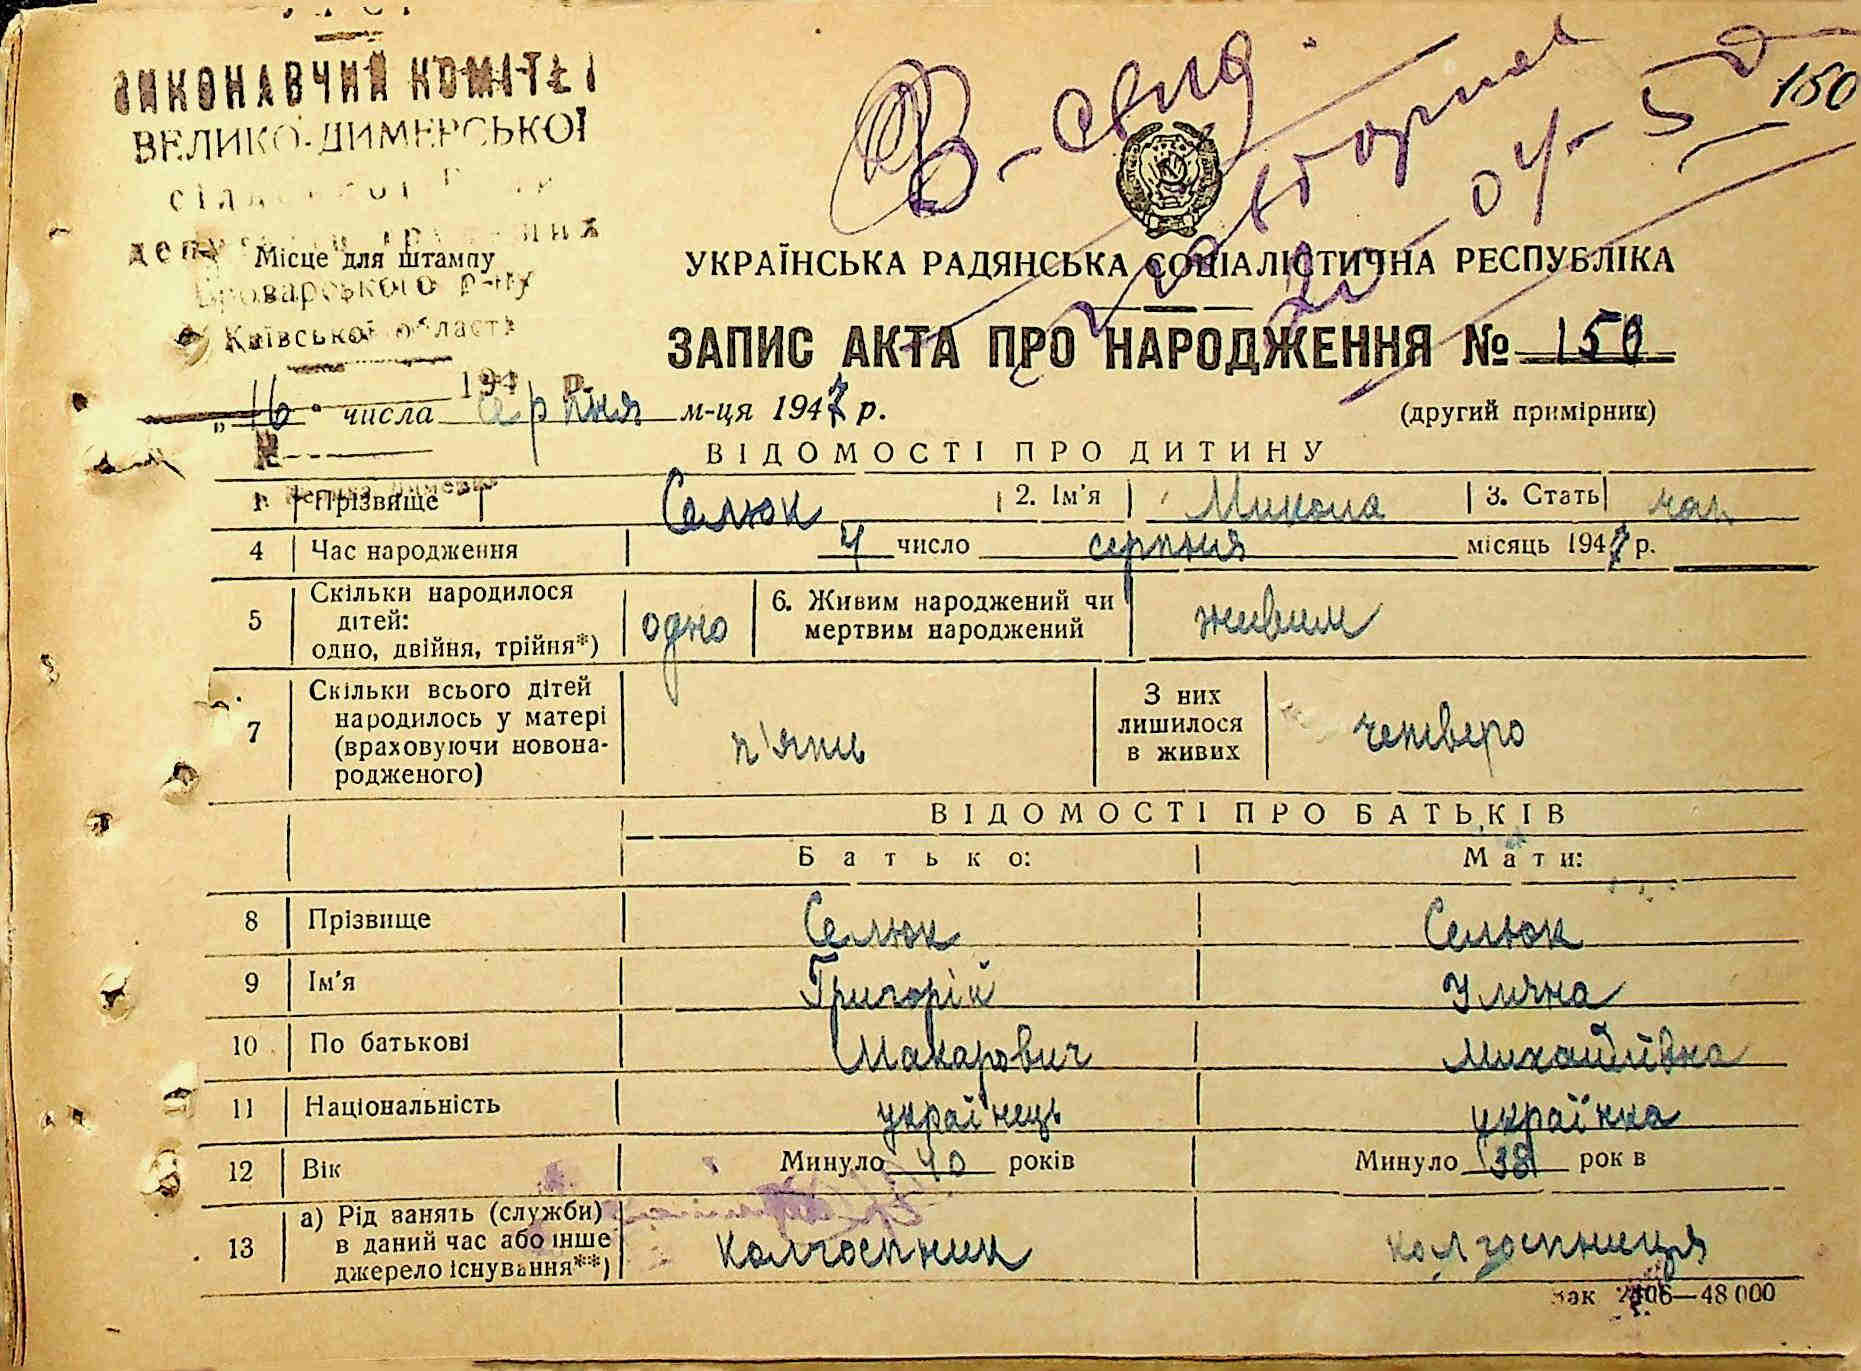 ВИКОНАВЧИЙ КОМІТЕТ
ВЕЛИКО-ДИМЕРСЬКОЇ
Місце для штампу
Броварського р-ну
Київської області
194 р.
В-свид
повторна
04-5
150
УКРАЇНСЬКА РАДЯНСЬКА СОЦІАЛІСТИЧНА РЕСПУБЛІКА
ЗАПИС АКТА ПРО НАРОДЖЕННЯ № 150
„16" числа серпня м-ця 1947 р.
(другий примірник)
ВІДОМОСТІ ПРО ДИТИНУ
1 Прізвище Селюк 2. Ім'я Микола 3. Стать чол
4 Час народження 4 число серпня місяць 1947 р.
5 Скільки народилося дітей: одно, двійня, трійня*) одно 6. Живим народжений чи мертвим народжений живим
7 Скільки всього дітей народилось у матері (враховуючи новона-родженого) п'ять З них лишилося в живих четверо
ВІДОМОСТІ ПРО БАТЬКІВ
Батько: Мати:
8 Прізвище Селюк Селюк
9 Ім'я Григорій Уляна
10 По батькові Макарович Михайлівна
11 Національність українець українка
12 Вік Минуло 40 років Минуло 38 рок в
13 а) Рід занять (служби) в даний час або інше джерело існування**) колгоспник колгоспниця
Зак 2406—48 000